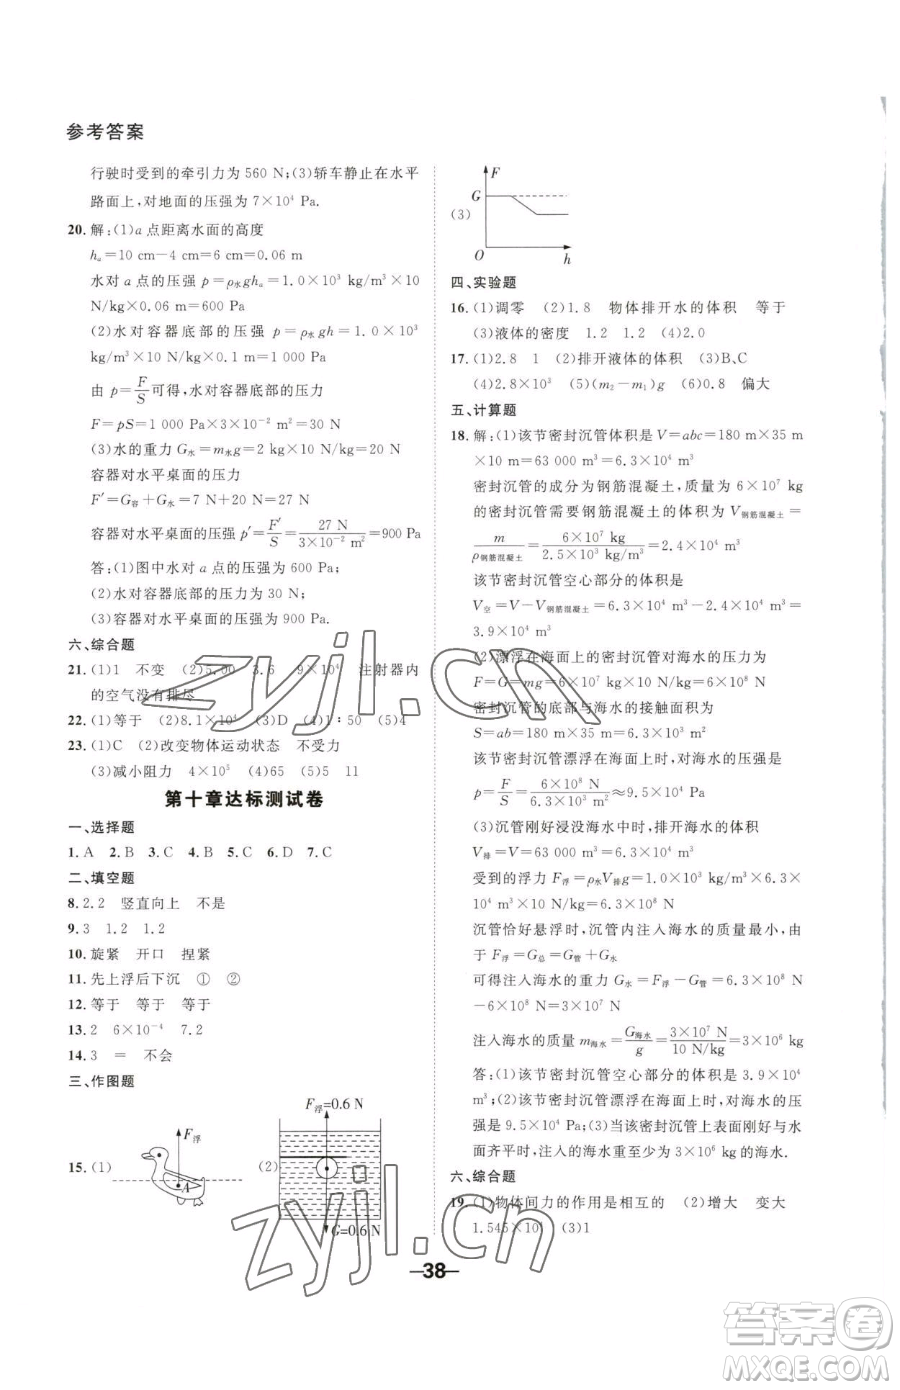 参考答案
行驶时受到的牵引力为 560 N;(3)轿车静止在水平
路面上,对地面的压强为 7×10⁴ Pa.
20. 解:(1)a 点距离水面的高度
hₐ=10 cm-4 cm=6 cm=0.06 m
水对 a 点的压强 p=ρ水ghₐ=1.0×10³ kg/m³×10
N/kg×0.06 m=600 Pa
(2)水对容器底部的压强 p=ρ水gh=1.0×10³
kg/m³×10 N/kg×0.1 m=1 000 Pa
由 p=F/S可得,水对容器底部的压力
F=pS=1 000 Pa×3×10⁻² m²=30 N
(3)水的重力 G水=m水g=2 kg×10 N/kg=20 N
容器对水平桌面的压力
F′=G容+G水=7 N+20 N=27 N
容器对水平桌面的压强 p′=F′/S=27 N/3×10⁻² m²=900 Pa
答:(1)图中水对 a 点的压强为 600 Pa;
(2)水对容器底部的压力为 30 N;
(3)容器对水平桌面的压强为 900 Pa.
六、综合题
21. (1)1 不变 (2)5.00 3.6 9×10⁴ 注射器内
的空气没有排尽
22. (1)等于 (2)8.1×10⁴ (3)D (4)1∶50 (5)4
23. (1)C (2)改变物体运动状态 不受力
(3)减小阻力 4×10⁵ (4)65 (5)5 11
第十章达标测试卷
一、选择题
1. A 2. B 3. C 4. B 5. C 6. D 7. C
二、填空题
8. 2.2 竖直向上 不是
9. 3 1.2 1.2
10. 旋紧 开口 捏紧
11. 先上浮后下沉 ① ②
12. 等于 等于 等于
13. 2 6×10⁻⁴ 7.2
14. 3 = 不会
三、作图题
15. (1)
F浮
A
(2)
F浮=0.6 N
G=0.6 N
(3)
F
G
O
h
四、实验题
16. (1)调零 (2)1.8 物体排开水的体积 等于
(3)液体的密度 1.2 1.2 (4)2.0
17. (1)2.8 1 (2)排开液体的体积 (3)B、C
(4)2.8×10³ (5)(m₂-m₁)g (6)0.8 偏大
五、计算题
18. 解:(1)该节密封沉管体积是 V=abc=180 m×35 m
×10 m=63 000 m³=6.3×10⁴ m³
密封沉管的成分为钢筋混凝土,质量为 6×10⁷ kg
的密封沉管需要钢筋混凝土的体积为 V钢筋混凝土=
m/ρ钢筋混凝土=6×10⁷ kg/2.5×10³ kg/m³=2.4×10⁴ m³
该节密封沉管空心部分的体积是
V空=V-V钢筋混凝土=6.3×10⁴ m³-2.4×10⁴ m³=
3.9×10⁴ m³
(2)漂浮在海面上的密封沉管对海水的压力为
F=G=mg=6×10⁷ kg×10 N/kg=6×10⁸ N
密封沉管的底部与海水的接触面积为
S=ab=180 m×35 m=6.3×10³ m²
该节密封沉管漂浮在海面上时,对海水的压强是
p=F/S=6×10⁸ N/6.3×10³ m²≈9.5×10⁴ Pa
(3)沉管刚好浸没海水中时,排开海水的体积
V排=V=63 000 m³=6.3×10⁴ m³
受到的浮力 F浮=ρ水V排g=1.0×10³ kg/m³×6.3×
10⁴ m³×10 N/kg=6.3×10⁸ N
沉管恰好悬浮时,沉管内注入海水的重力满足,由
于 F浮=G总=G管+G水
可得注入海水的重力 G水=F浮-G管=6.3×10⁸ N
-6×10⁸ N=3×10⁷ N
注入海水的质量 m海水=G海水/g=3×10⁷ N/10 N/kg=3×10⁶ kg
答:(1)该节密封沉管空心部分的体积是 3.9×10⁴
m³;(2)该节密封沉管漂浮在海面上时,对海水的压
强是 9.5×10⁴ Pa;(3)当该节密封沉管上表面与海
水面齐平时,注入的海水重至少 3×10⁶ kg的海水.
六、综合题
19. (1)物体间力的作用是相互的 (2)增大 变大
1.545×10⁴ (3)1
38
zyjl.cn
zyjl.cn
答案圈
MXQE.COM